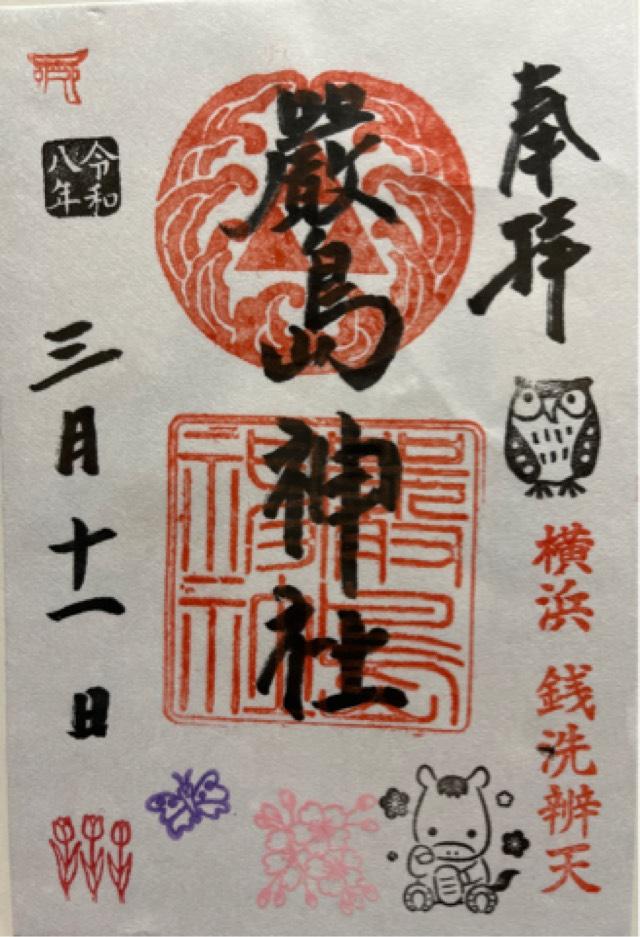 奉拝
横浜 銭洗辨天
嚴島神社
嚴島
神社
令和
八年
三月十一日